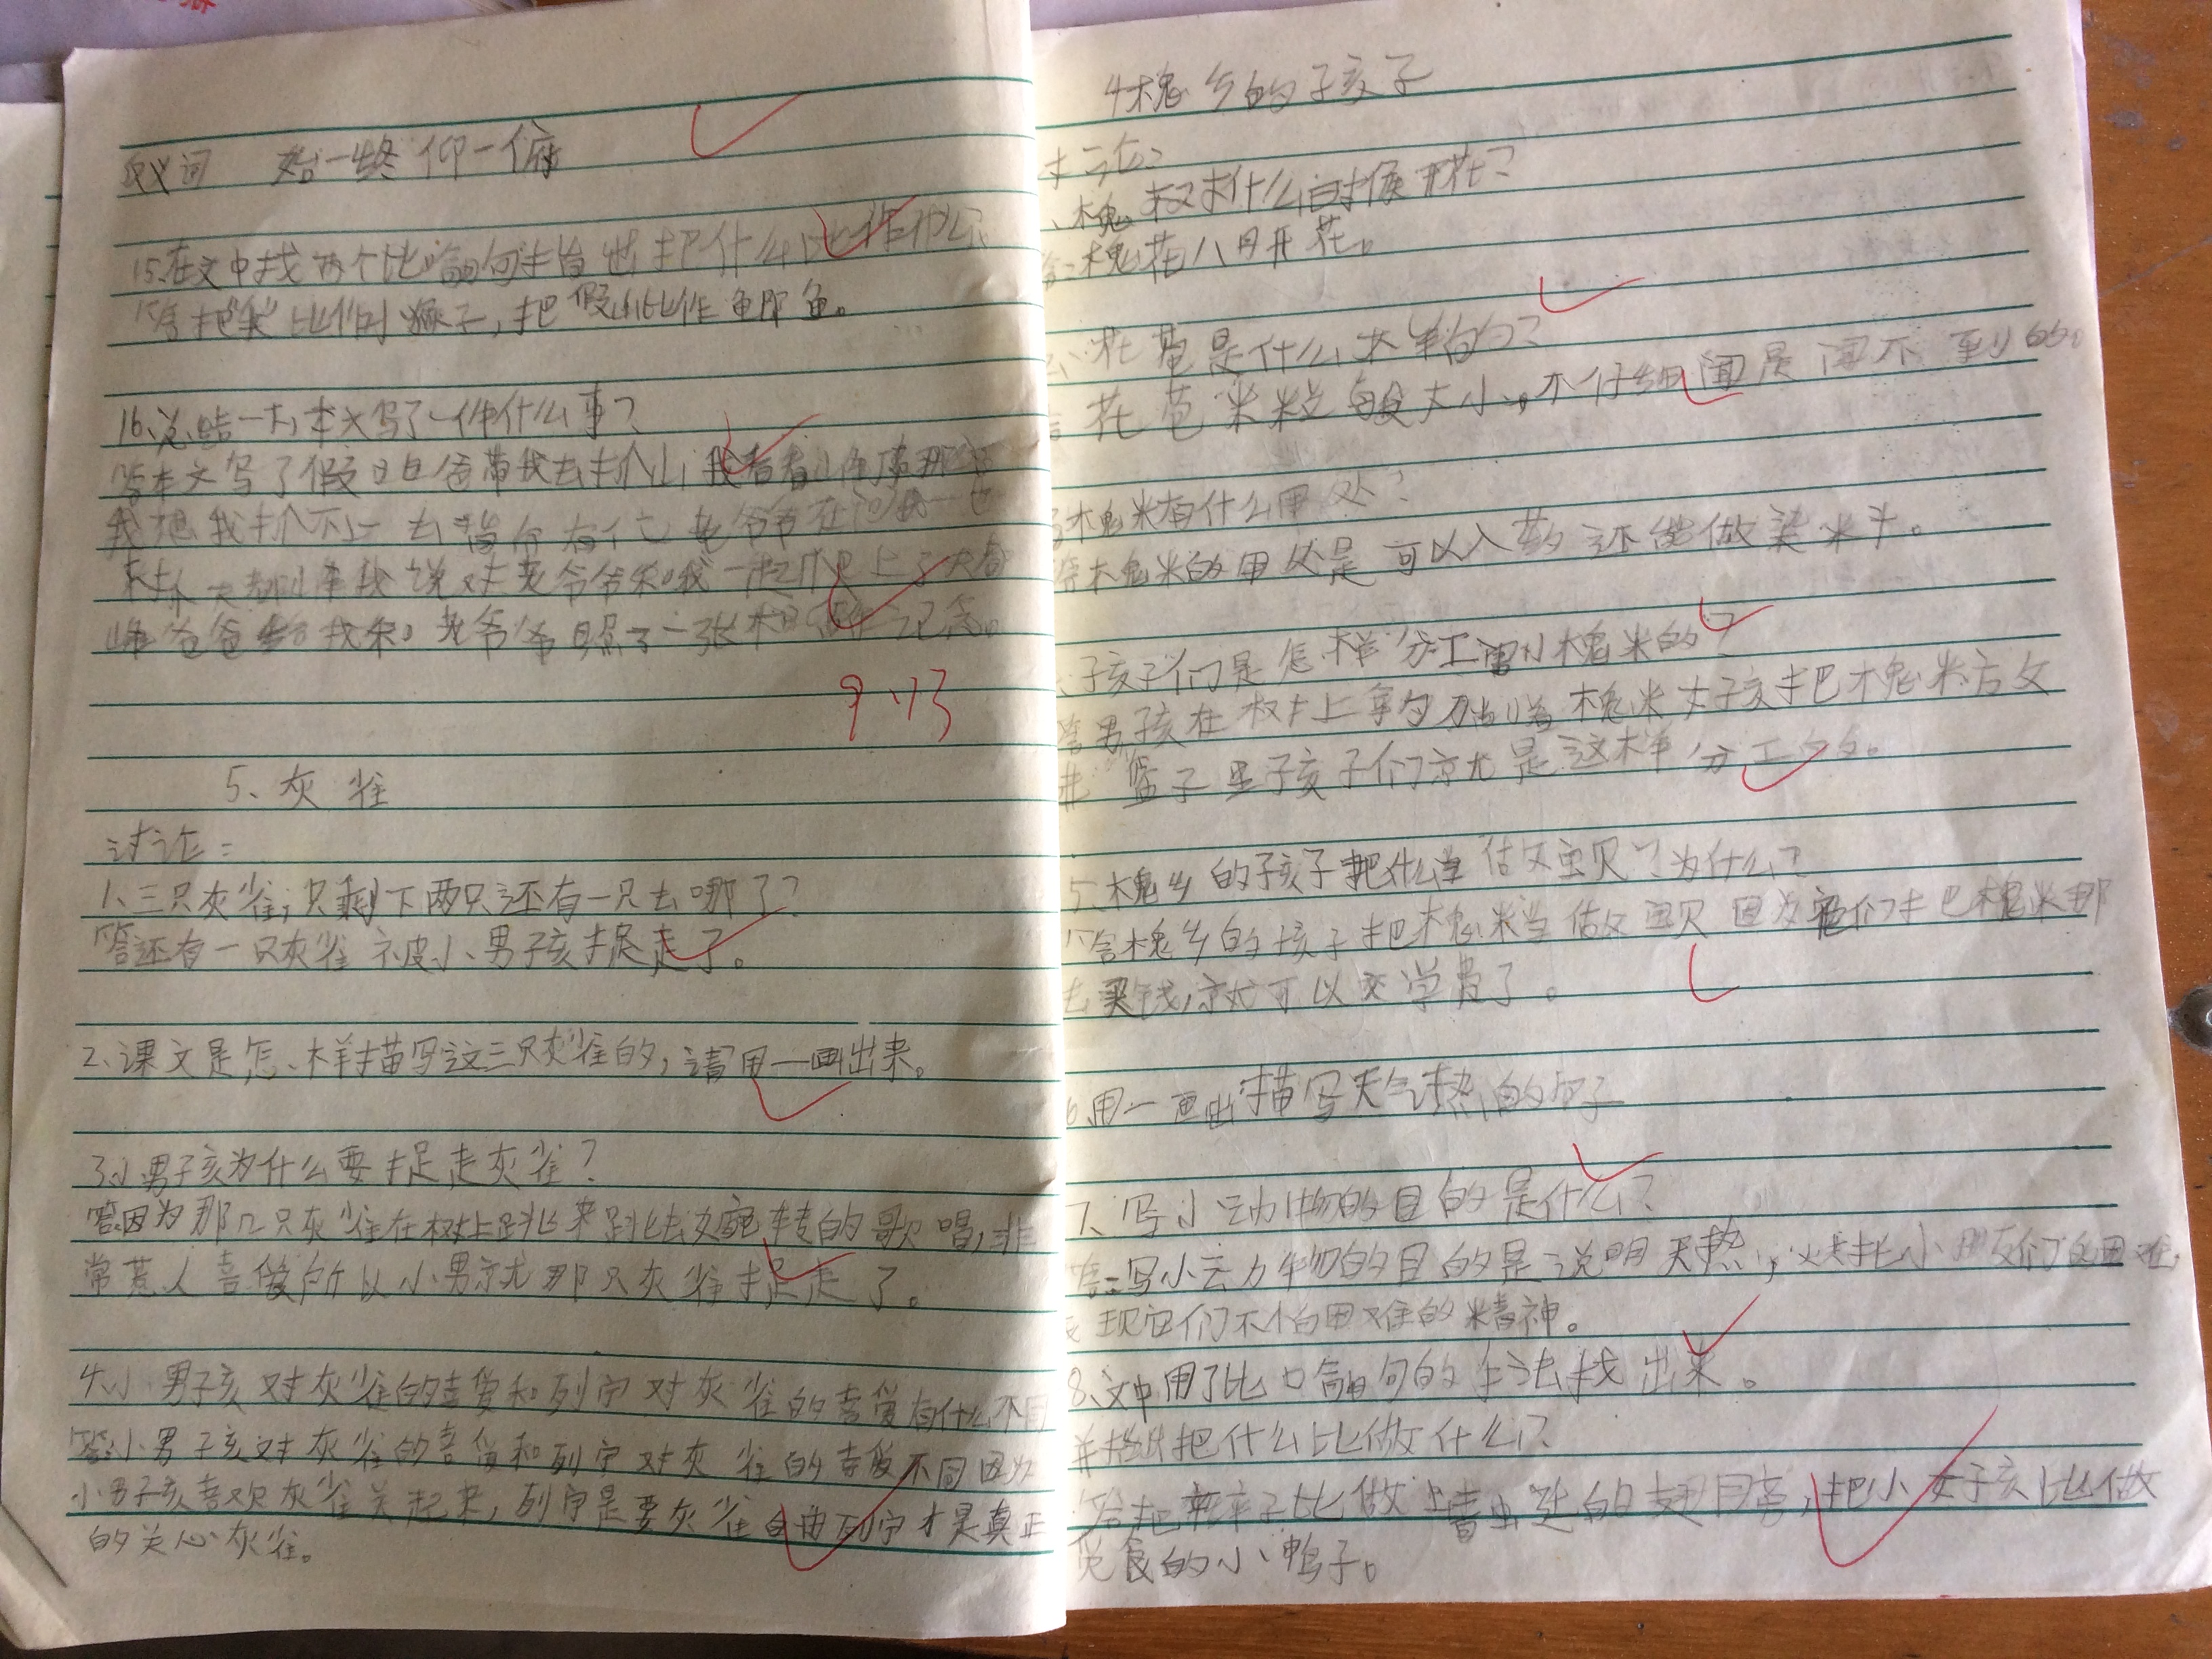 反义词 始一终 仰一俯
15.在文中找两个比喻句指出把什么比作什么
答把"我"比作小猴子,把 比作鱼。
16、总结一下,本文写了一件什么事?
答本文写了假日爸爸带我去 我看看
我想我 不上去 有 老爷爷在
我说对老爷爷和我一起爬上了天都
峰爸爸给我和老爷爷照了一张相
9.13
5、灰雀
讨论:
1、三只灰雀,只剩下两只还有一只去哪了?
答还有一只灰雀被小男孩捉走了。
2、课文是怎样描写这三只灰雀的,请用一画出来。
3、小男孩为什么要捉走灰雀?
答因为那几只灰雀在树上跳来跳去婉转的歌唱,非
常惹人喜爱所以小男就那只灰雀捉走了。
4、小男孩对灰雀的喜爱和列宁对灰雀的喜爱有什么不同
答:小男孩对灰雀的喜爱和列宁对灰雀的喜爱不同因为
小男孩喜欢灰雀关起来,列宁是要灰雀自由列宁才是真正
的关心灰雀。
4槐乡的孩子
槐树什么时候开花?
槐花八月开花。
花苞是什么样的?
花苞米粒般大小,不仔细闻是闻不到的。
槐米有什么用处?
答槐米的用处是可以入药还能做染料。
孩子们是怎样分工 槐米的?
答男孩在树上拿 刀 槐米女孩把槐米放
进篮子里孩子们就是这样分工的。
5、槐乡的孩子把什么当做宝贝?为什么?
答槐乡的孩子把槐米当做宝贝因为 们把槐米
去买钱,就可以交学费了。
6.用一画出描写天气热的句子
7、写小动物的目的是什么?
答:写小动物的目的是说明天热, 小朋友们的困难,
表现它们不怕困难的精神。
8、文中用了比喻句的 法找出来。
并指出把什么比做什么?
答把辫子比做 的翅膀,把小女孩比做
的小鸭子。